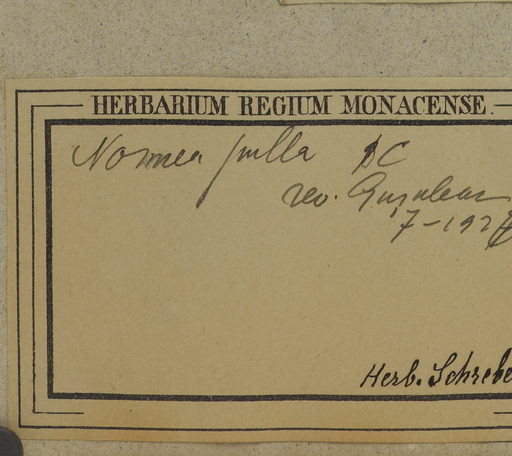 HERBARIUM REGIUM MONACENSE.
Nonnea pulla DC
rev. Gușuleac
7-192
Herb. Schrebe